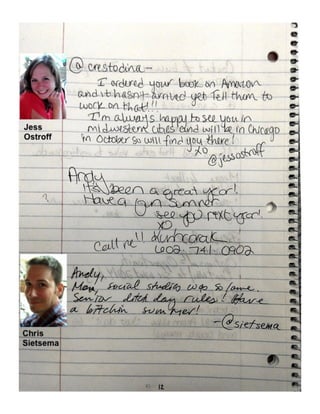 @crestodina -
I ordered your book on Amazon
and it hasn't arrived yet. Tell them to
work on that!!
I'm always happy to see you in
midwestern cities and will be in Chicago
in October so will find you there!
XO
@jessostroff
Jess
Ostroff
Andy
It's been a great year!
Have a fun summer
see you next year!
XO,
Call me!!
602.741.0902
Andy,
Man, social studies was so lame.
Senior ditch day rules! Have
a bitchin summer!
-@sietsema
Chris
Sietsema
12